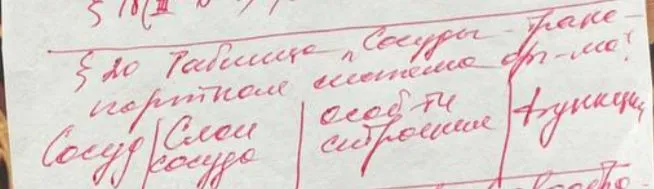 § 20 Таблица „Сосуды - транс-
портная система орг-ма"
Сосуд | Слои сосуда | особ-ти строения | функции